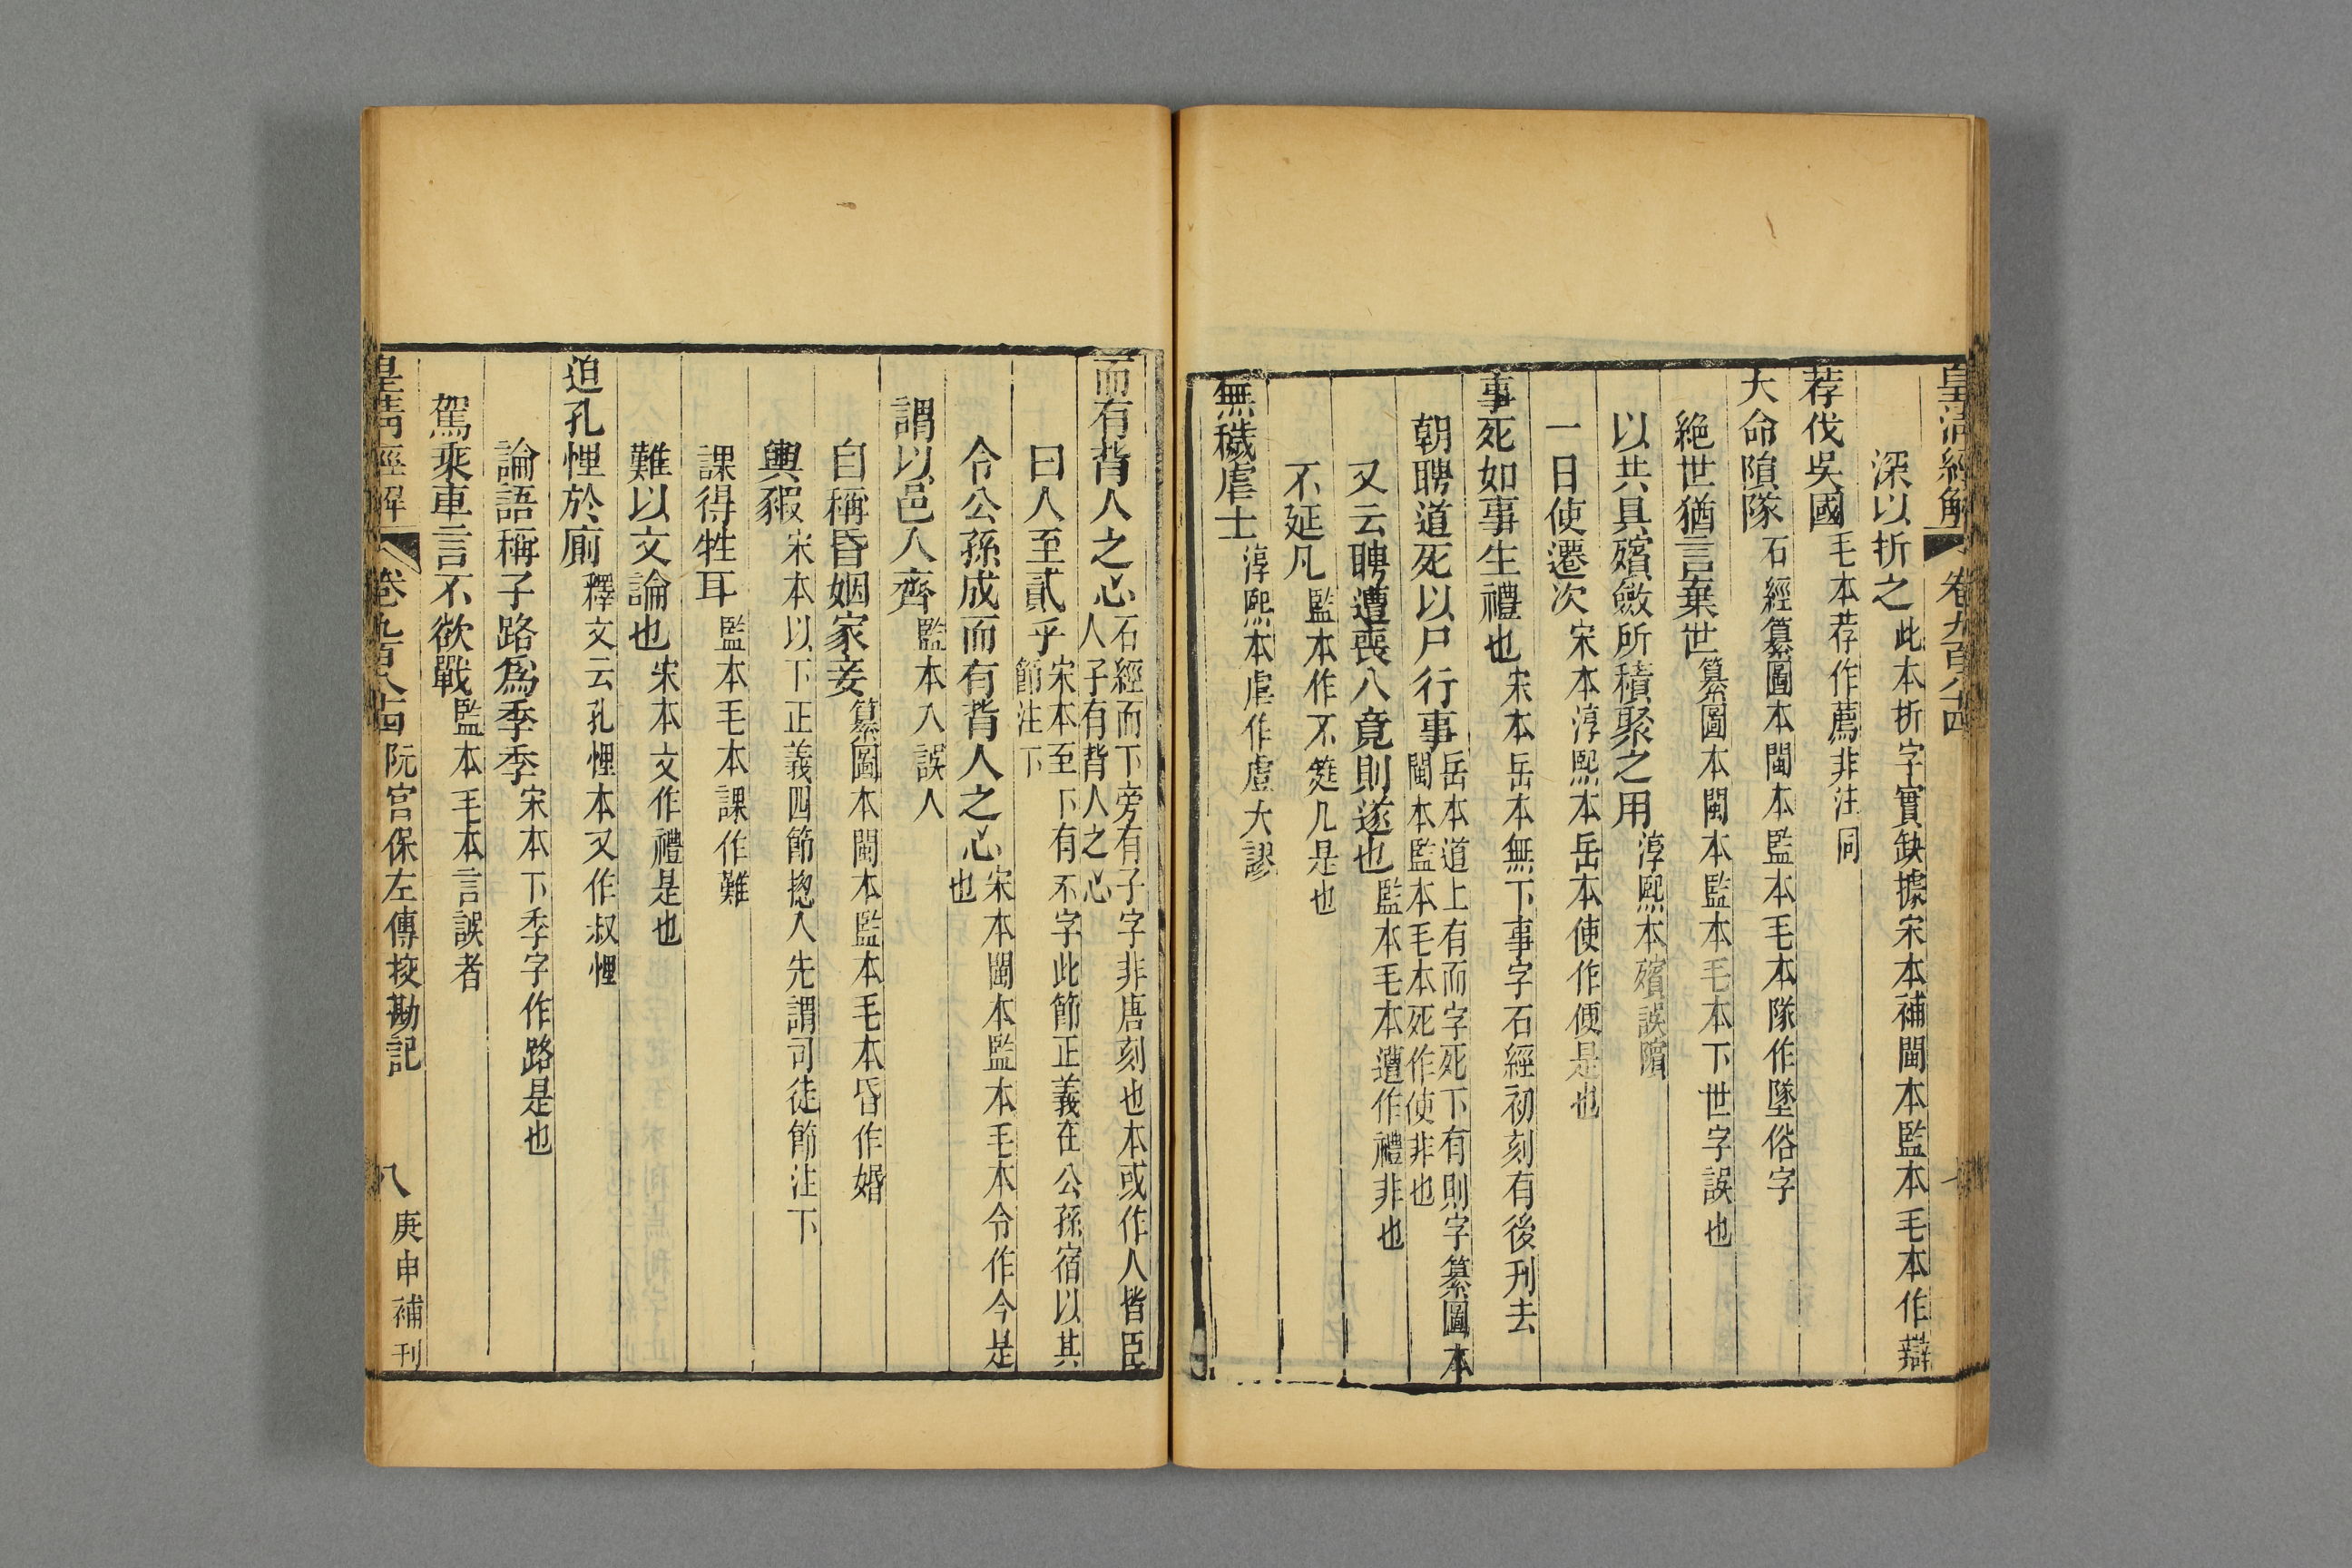 皇清經解 卷九百八十四
深以折之此本折字實缺據宋本補閩本監本毛本作辯
荐伐吳國毛本荐作薦非注同
大命隕隊石經纂圖本閩本監本毛本隊作墜俗字
絶世猶言棄世纂圖本閩本監本毛本下世字誤也
以共具殯斂所積聚之用淳熙本殯誤隕
一日使遷次宋本淳熙本岳本使作便是也
事死如事生禮也宋本岳本無下事字石經初刻有後刊去
朝聘道死以尸行事岳本道上有而字死下有則字纂圖本閩本監本毛本死作使非也
又云聘遭喪入竟則遂也監本毛本遭作禮非也
不延几監本作不筵几是也
無穢虐士淳熙本虐作虛大謬
而有背人之心石經而下旁有子字非唐刻也本或作人皆臣人子有背人之心
曰人至貳乎宋本至下有不字此節正義在公孫宿以其節注下
令公孫成而有背人之心宋本閩本監本毛本令作今是也
謂以邑入齊監本入誤人
自稱昏姻家妾纂圖本閩本監本毛本昏作婚
輿豭宋本以下正義四節揔入先謂司徒節注下
課得牲耳監本毛本課作難
難以文論也宋本文作禮是也
迫孔悝於廁釋文云孔悝本又作叔悝
論語稱子路爲季季宋本下季字作路是也
駕乘車言不欲戰監本毛本言誤者
皇清經解 卷九百八十四 阮宮保左傳挍勘記 八 庚申補刊